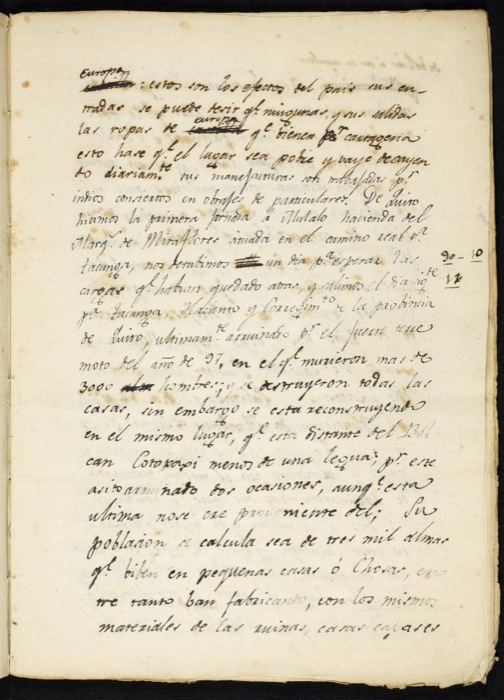 Europa
: estos son los efectos del pais sus en-
tradas se puede desir q.e ningunas, y sus salidas
Europa
las ropas de q.e bienen p.r cartagena
esto hase q.e el lugar sea pobre y vaya decayen
do diariam.te sus manefacturas son trabajadas p.r
indios consiertos en obrajes de particulares. De Quito
hisimos la primera jornada á Mulalo hacienda del
Marq.s de Miraflores situada en el camino real p.a
Tacunga, nos detubimos un dia p.a esperar las
90 - 10
cargas q.e habian quedado atras, y salimos el dia sig.te
12
p.a Tacunga. Haciento y Corregim.to de la probincia
de Quito, ultimam.te arruinado p.r el fuerte terre
moto del año de 97, en el q.e murieron mas de
3000 hombres; y se destruyeron todas las
casas, sin embargo se esta reconstruyendo
en el mismo lugar, q.e esta distante del Bol
can Cotopaxi menos de una legua; p.r este
a sido arruinado dos ocasiones, aunq.e esta
ultima no se cre probeniente del; Su
poblasion se calcula sea de tres mil almas
q.e biben en pequenas casas ó Chosas, en
tre tanto ban fabricando, con los mismos
materiales de las ruinas, casas capases